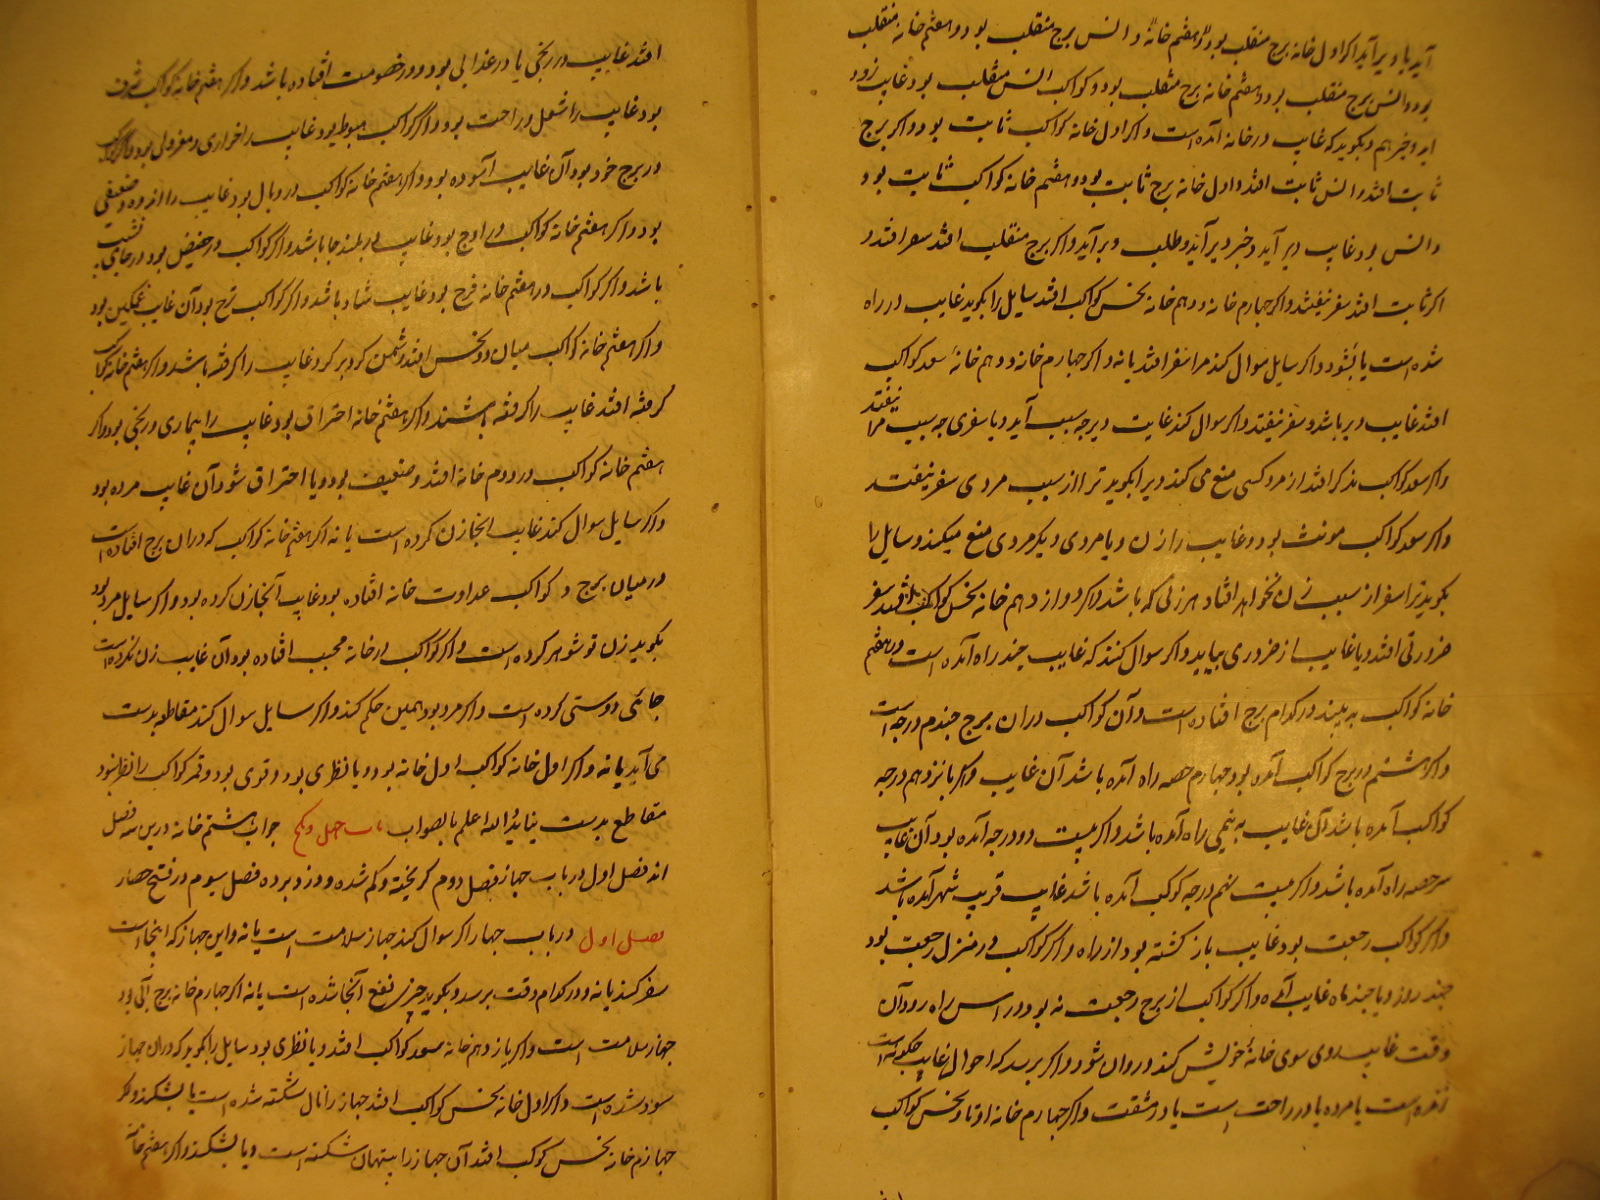 آید یا دیر آید اگر اول خانه برج منقلب بود و هفتم خانه و انس برج منقلب بود و هفتم خانه منقلب
بود و انس برج منقلب بود و هفتم خانه برج منقلب بود و کواکب انس منقلب بود غایب زود
اید و خبر هم و بگوید که غایب در خانه آمده است و اگر اول خانه کواکب ثابت بود و اگر برج
ثابت افتد و انس ثابت افتد و اول خانه برج ثابت بود و هفتم خانه کواکب ثابت بود
و انس بود غایب دیر آید و خبر دیر آید و طلب دیر آید و اگر برج منقلب افتد سفر افتد و
اگر ثابت افتد سفر نیفتد و اگر چهارم خانه و دهم خانه نحس کواکب افتد سایل را بگوید غایب در راه
شده است یا بشود و اگر سایل سوال کند مرا سفر افتد یا نه و اگر چهارم خانه و دهم خانهٔ سعد کواکب
افتد غایب دیر باشد و سفر نیفتد و اگر سوال کند غایب دیر چه سبب آید و یا سفری چه سبب مرا نیفتد
و اگر سعد کواکب مذکر افتد از مرد کسی منع می کند ویرا بگوید ترا از سبب مردی سفر نیفتد
و اگر سعد کواکب مونث بود و غایب را زن و یا مردی دیگر مردی منع میکند و سایل را
بگوید ترا سفر از سبب زن نخواهد افتاد هر زنی که باشد و اگر دوازدهم خانه نحس کواکب افتد سفر
ضرورتی افتد و یا غایب از ضروری بیاید و اگر سوال کنند که غایب چند راه آمده است در هفتم
خانه کواکب به بیند در کدام برج افتاده است و آن کواکب دران برج چندم درجه است
و اگر هشتم درج کواکب آمده بود چهارم حصه راه آمده باشد آن غایب و اگر پانزدهم درجه
کواکب آمده باشد آن غایب به نیمی راه آمده باشد و اگر بیست دو درجه آمده بود آن غایب
سه حصه راه آمده باشد و اگر بیست نهم درجه کوکب آمده باشد غایب قریب شهر آمده باشد
و اگر کواکب رجعت بود غایب باز گشته بود از راه و اگر کواکب در منزل رجعت بود
چند روز و یا چند ماه غایب آمده و اگر کواکب از برج رجعت نه بود و راس راه رود آن
وقت غایب روی سوی خانهٔ خویش کند و روان شود و اگر پرسد که احوال غایب چگونه است
زنده است یا مرده یا در راحت است یا در مشقت و اگر چهارم خانه اوتاد نحس کواکب
افتد غایب در رنجی یا در عذابی بود و در خصومت افتاده باشد و اگر هفتم خانه کواکب شرف
بود غایب را شغل و راحت بود و اگر کواکب هبوط بود غایب را خواری و معزولی بود و اگر کواکب
در برج خود بود آن غایب آسوده بود و اگر هفتم خانه کواکب در وبال بود غایب را اندوه و ضعیفی
بود و اگر هفتم خانه کواکب در اوج بود غایب در بلند جا باشد و اگر کواکب در حضیض بود در جای نشست
باشد و اگر کواکب در هفتم خانه فرح بود غایب شاد باشد و اگر کواکب ترح بود آن غایب غمگین بود
و اگر هفتم خانه کواکب میان دو نحس افتد دشمن گرد بر گرد غایب را گرفته باشد و اگر هفتم خانه کواکب
گرفته افتد غایب را گرفته باشند و اگر هفتم خانه احتراق بود غایب را بیماری و رنجی بود و اگر
هفتم خانه کواکب در دوم خانه افتد و ضعیف بود و یا احتراق شود آن غایب مرده بود
و اگر سایل سوال کند غایب آنجا زن کرده است یا نه اگر هفتم خانه کواکب که دران برج افتاده است
در میان برج و کواکب عداوت خانه افتاده بود غایب آنجا زن کرده بود و اگر سایل مرد بود
بگوید زن تو شوهر کرده است و اگر کواکب در خانه محبب افتاده بود آن غایب زن نکرده است
جائی دوستی کرده است و اگر مرد بود همین حکم کند و اگر سایل سوال کند مقاطعه بدست
می آید یا نه و اگر اول خانه کواکب اول خانه بود و یا نظری بود و قوی بود و قمر کواکب را نظر نبود
مقاطع بدست نیاید والله اعلم بالصواب باب چهل و پنج جواب هشتم خانه درین سه فصل
اند فصل اول در باب جهاز فصل دوم گریخته و گم شده و دزد برده فصل سیوم در فتح حصار
فصل اول در باب جهاز اگر سوال کند جهاز سلامت است یا نه و این جهاز که اینجا است
سفر کند یا نه و در کدام وقت برسد و بگوید چیزی نفع آنجا شده است یا نه اگر چهارم خانه برج آبی بود
جهاز سلامت است و اگر یازدهم خانه سعد کواکب افتد و یا نظری بود سایل را بگوید که دران جهاز
سود شده است و اگر اول خانه نحس کواکب افتد جهاز را نال شکسته شده است یا بشکند و اگر
چهارم خانه نحس کوکب افتد آن جهاز را پنهان شکسته است و یا بشکند و اگر هفتم خانه